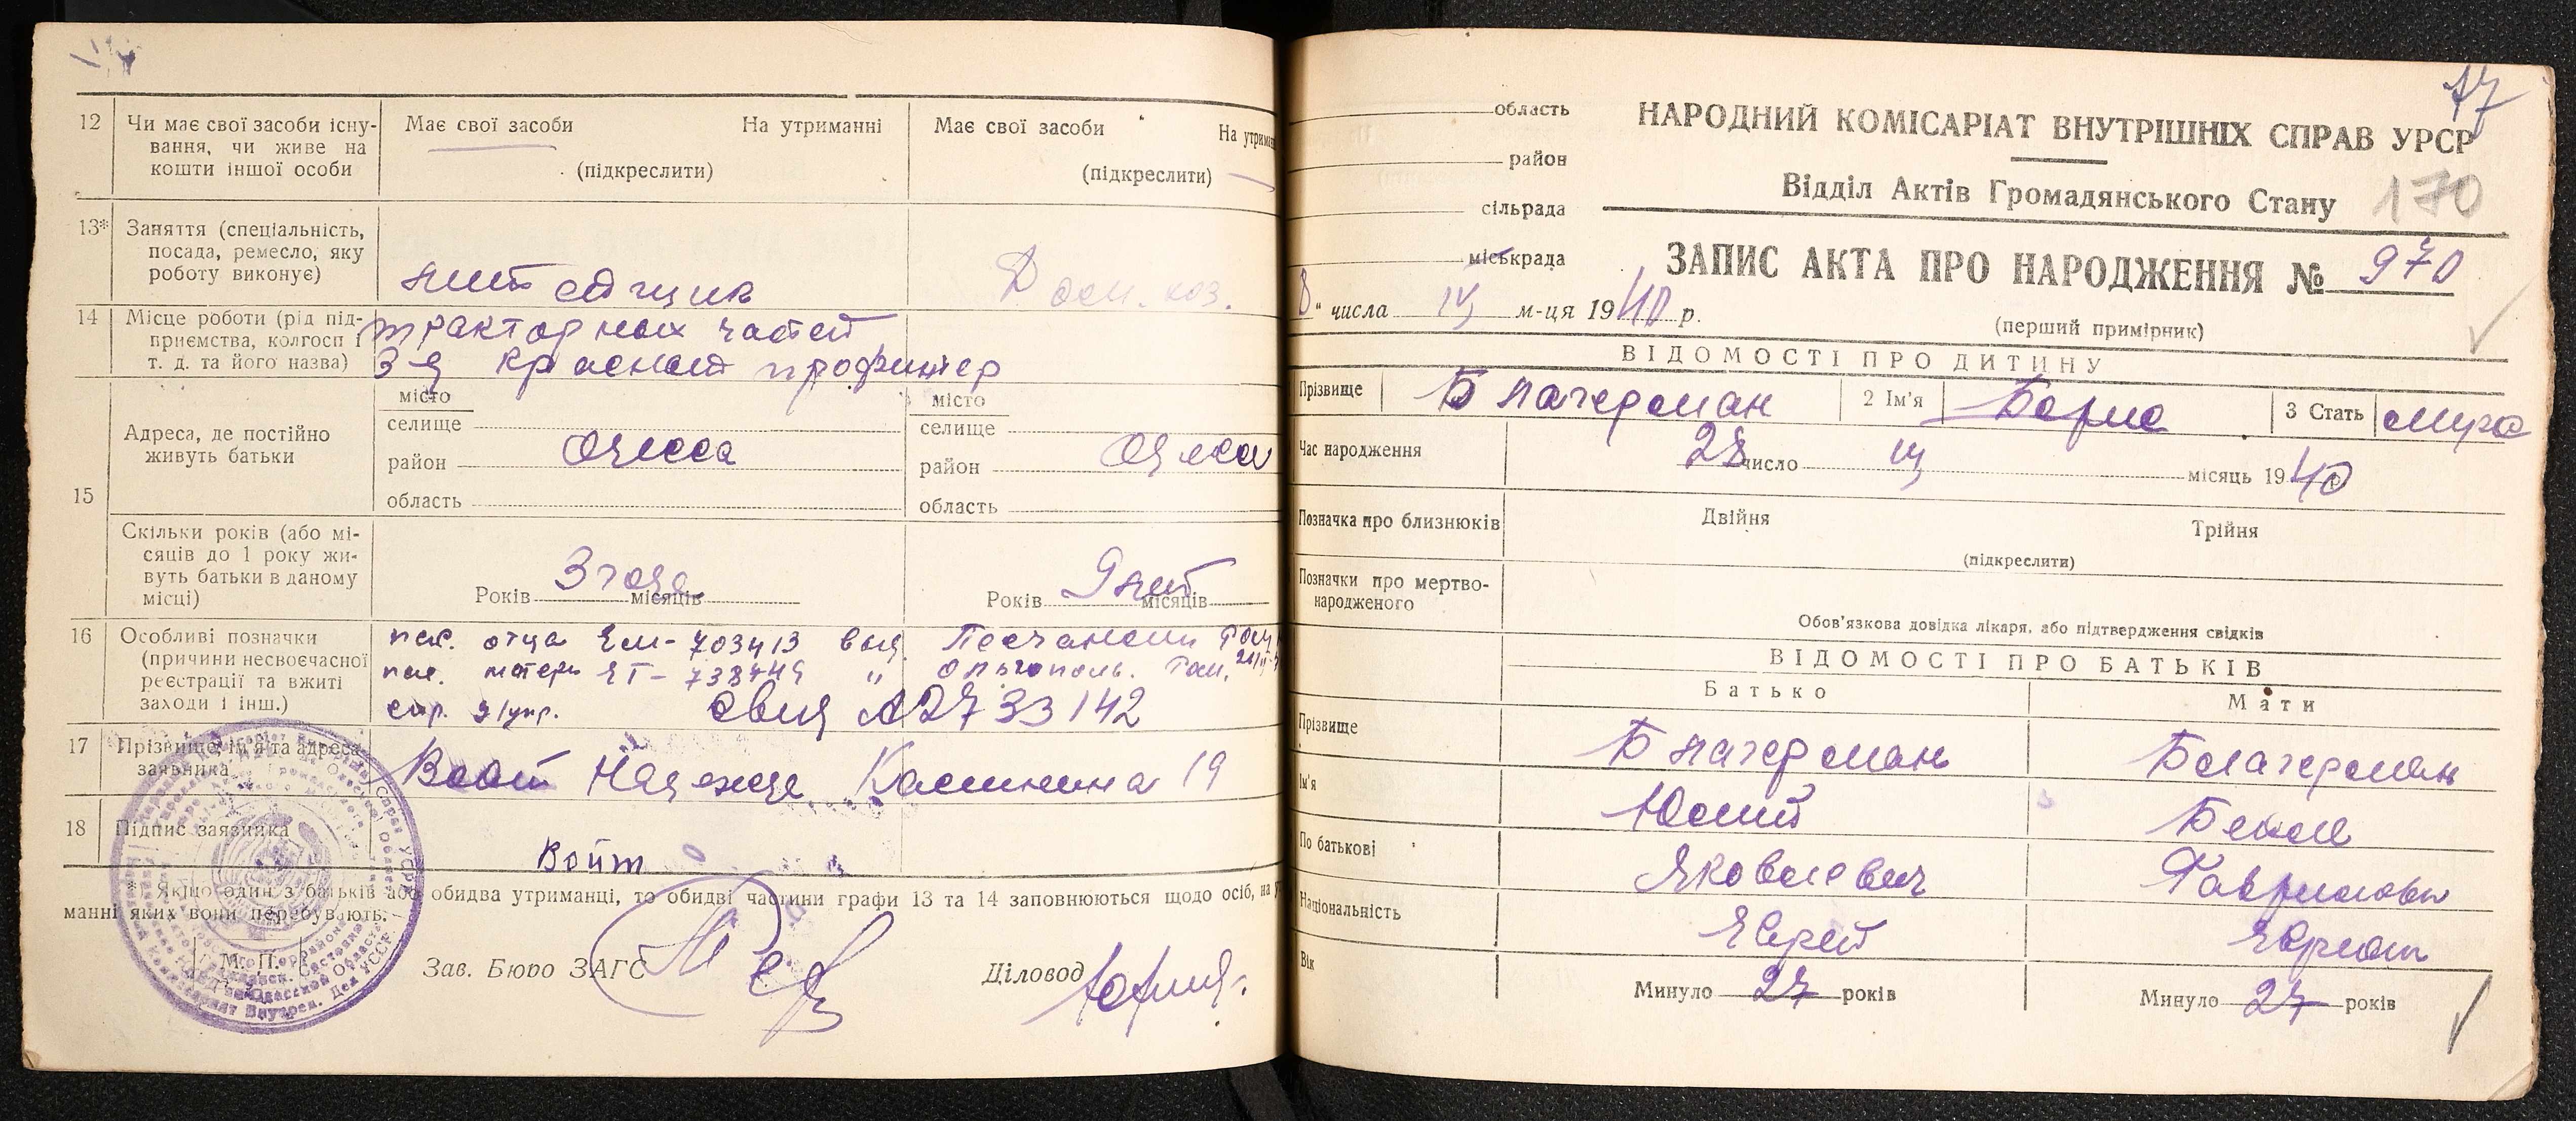 12 Чи має свої засоби існу-
вання, чи живе на
кошти іншої особи
Має свої засоби На утриманні
(підкреслити)
Має свої засоби На утриман
(підкреслити)
13* Заняття (спеціальність,
посада, ремесло, яку
роботу виконує)
Дом. хоз.
14 Місце роботи (рід під-
приємства, колгосп і
т. д. та його назва)
тракторных частей
З-д Красный профинтер
15 Адреса, де постійно
живуть батьки
місто
селище
район Одесса
область
місто
селище
район Одесса
область
Скільки років (або мі-
сяців до 1 року жи-
вуть батьки в даному
місці)
Років 3 года місяців
Років 9 лет місяців
16 Особливі позначки
(причини несвоєчасної
реєстрації та вжиті
заходи і інш.)
отца ЕМ-703413 выд. Песчаным
матери 〃 Ольгополь.
свид А2733142
17 Прізвище, ім'я та адреса
заявника
Войт Надежда Калинина 19
18 Підпис заявника
Войт
*) Якщо один з батьків або обидва утриманці, то обидві частини графи 13 та 14 заповнюються щодо осіб, на у
манні яких вони перебувають.
М. П.
Зав. Бюро ЗАГС
Діловод
17
область
район
сільрада
міськрада
НАРОДНИЙ КОМІСАРІАТ ВНУТРІШНІХ СПРАВ УРСР
Відділ Актів Громадянського Стану
170
ЗАПИС АКТА ПРО НАРОДЖЕННЯ № 970
8 " числа IV м-ця 1940 р.
(перший примірник)
ВІДОМОСТІ ПРО ДИТИНУ
Прізвище Благерман 2 Ім'я Борис 3 Стать муж
Час народження 28 число III місяць 1940 р.
Позначка про близнюків Двійня Трійня
(підкреслити)
Позначки про мертво-
народженого
Обов'язкова довідка лікаря, або підтвердження свідків
ВІДОМОСТІ ПРО БАТЬКІВ
Батько Мати
Прізвище Благерман Благерман
Ім'я Юлий Бейла
По батькові Яковлевич Гавриловн
Національність Еврей Еврейк
Вік Минуло 27 років Минуло 27 років